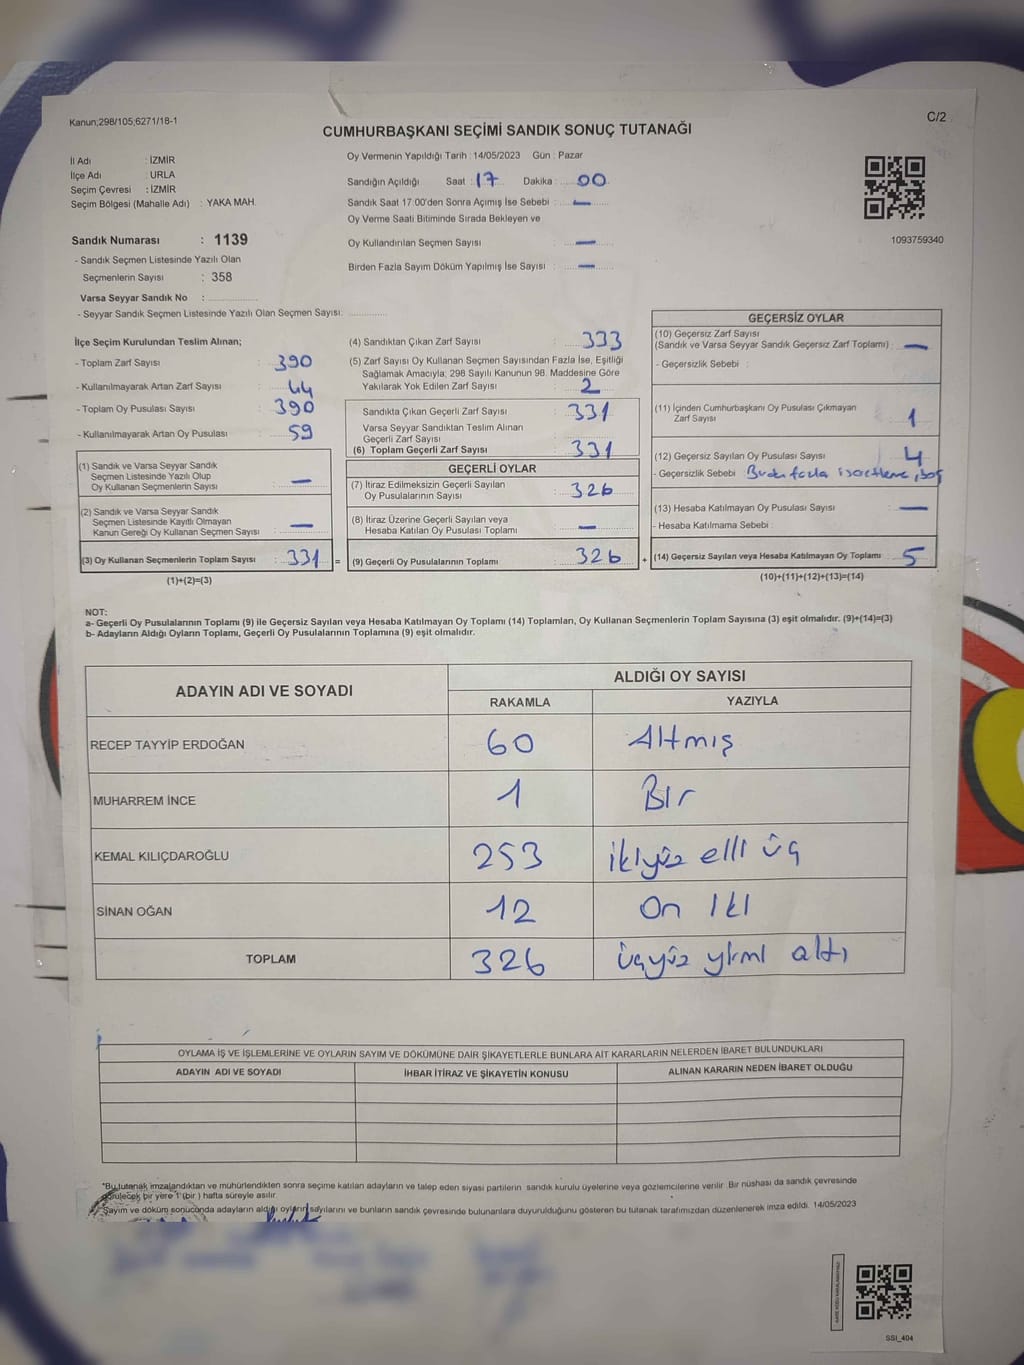 Kanun;298/105,6271/18-1
C/2
CUMHURBAŞKANI SEÇİMİ SANDIK SONUÇ TUTANAĞI
İl Adı : İZMİR
İlçe Adı : URLA
Seçim Çevresi : İZMİR
Seçim Bölgesi (Mahalle Adı) : YAKA MAH.
Sandık Numarası : 1139
- Sandık Seçmen Listesinde Yazılı Olan
Seçmenlerin Sayısı : 358
Varsa Seyyar Sandık No :
- Seyyar Sandık Seçmen Listesinde Yazılı Olan Seçmen Sayısı:
Oy Vermenin Yapıldığı Tarih : 14/05/2023 Gün : Pazar
Sandığın Açıldığı Saat : 17 Dakika : 00
Sandık Saat 17.00'den Sonra Açımış İse Sebebi : —
Oy Verme Saati Bitiminde Sırada Bekleyen ve
Oy Kullandırılan Seçmen Sayısı : —
Birden Fazla Sayım Döküm Yapılmış İse Sayısı : —
1093759340
İlçe Seçim Kurulundan Teslim Alınan;
- Toplam Zarf Sayısı : 390
- Kullanılmayarak Artan Zarf Sayısı : 44
- Toplam Oy Pusulası Sayısı : 390
- Kullanılmayarak Artan Oy Pusulası : 59
(1) Sandık ve Varsa Seyyar Sandık
Seçmen Listesinde Yazılı Olup
Oy Kullanan Seçmenlerin Sayısı : —
(2) Sandık ve Varsa Seyyar Sandık
Seçmen Listesinde Kayıtlı Olmayan
Kanun Gereği Oy Kullanan Seçmen Sayısı : —
(3) Oy Kullanan Seçmenlerin Toplam Sayısı : 331 =
(1)+(2)=(3)
(4) Sandıktan Çıkan Zarf Sayısı : 333
(5) Zarf Sayısı Oy Kullanan Seçmen Sayısından Fazla İse, Eşitliği
Sağlamak Amacıyla; 298 Sayılı Kanunun 98. Maddesine Göre
Yakılarak Yok Edilen Zarf Sayısı : 2
Sandıkta Çıkan Geçerli Zarf Sayısı : 331
Varsa Seyyar Sandıktan Teslim Alınan
Geçerli Zarf Sayısı :
(6) Toplam Geçerli Zarf Sayısı : 331
GEÇERLİ OYLAR
(7) İtiraz Edilmeksizin Geçerli Sayılan
Oy Pusulalarının Sayısı : 326
(8) İtiraz Üzerine Geçerli Sayılan veya
Hesaba Katılan Oy Pusulası Toplamı : —
(9) Geçerli Oy Pusulalarının Toplamı : 326 +
GEÇERSİZ OYLAR
(10) Geçersiz Zarf Sayısı
(Sandık ve Varsa Seyyar Sandık Geçersiz Zarf Toplamı) : —
- Geçersizlik Sebebi :
(11) İçinden Cumhurbaşkanı Oy Pusulası Çıkmayan
Zarf Sayısı : 1
(12) Geçersiz Sayılan Oy Pusulası Sayısı : 4
- Geçersizlik Sebebi : fazla isaretleme, boş
(13) Hesaba Katılmayan Oy Pusulası Sayısı : —
- Hesaba Katılmama Sebebi :
(14) Geçersiz Sayılan veya Hesaba Katılmayan Oy Toplamı : 5
(10)+(11)+(12)+(13)=(14)
NOT:
a- Geçerli Oy Pusulalarının Toplamı (9) ile Geçersiz Sayılan veya Hesaba Katılmayan Oy Toplamı (14) Toplamları, Oy Kullanan Seçmenlerin Toplam Sayısına (3) eşit olmalıdır. (9)+(14)=(3)
b- Adayların Aldığı Oyların Toplamı, Geçerli Oy Pusulalarının Toplamına (9) eşit olmalıdır.
ADAYIN ADI VE SOYADI ALDIĞI OY SAYISI
RAKAMLA YAZIYLA
RECEP TAYYİP ERDOĞAN 60 Altmış
MUHARREM İNCE 1 Bir
KEMAL KILIÇDAROĞLU 253 ikiyüz elli üç
SİNAN OĞAN 12 On iki
TOPLAM 326 üçyüz yirmi altı
OYLAMA İŞ VE İŞLEMLERİNE VE OYLARIN SAYIM VE DÖKÜMÜNE DAİR ŞİKAYETLERLE BUNLARA AİT KARARLARIN NELERDEN İBARET BULUNDUKLARI
ADAYIN ADI VE SOYADI İHBAR İTİRAZ VE ŞİKAYETİN KONUSU ALINAN KARARIN NEDEN İBARET OLDUĞU
*Bu tutanak imzalandıktan ve mühürlendikten sonra seçime katılan adayların ve talep eden siyasi partilerin sandık kurulu üyelerine veya gözlemcilerine verilir. Bir nüshası da sandık çevresinde
görülecek bir yere 1 (bir) hafta süreyle asılır.
Sayım ve döküm sonucunda adayların aldığı oyların sayılarını ve bunların sandık çevresinde bulunanlara duyurulduğunu gösteren bu tutanak tarafımızdan düzenlenerek imza edildi. 14/05/2023
SSI_404